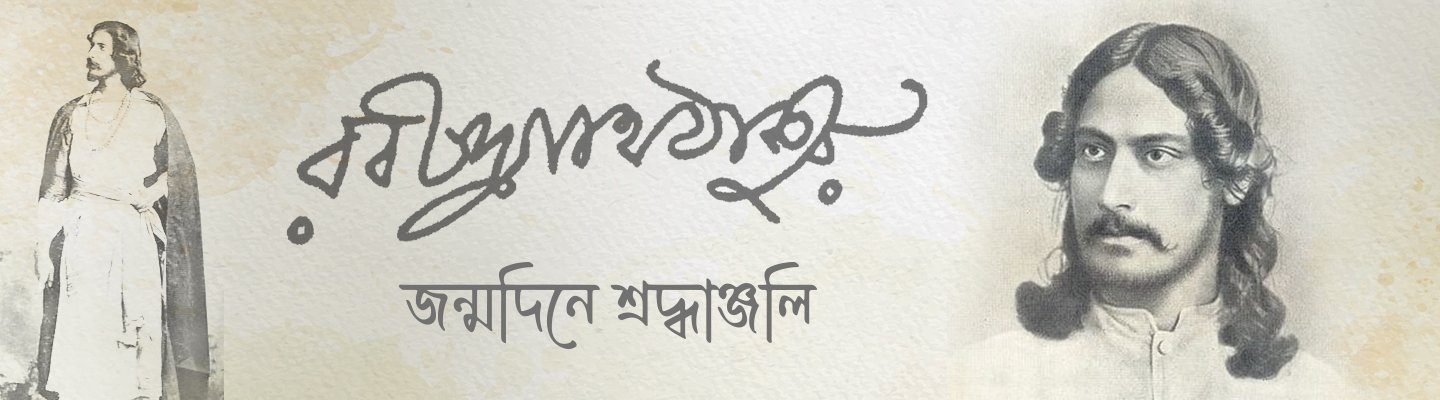 রবীন্দ্রনাথ ঠাকুর
জন্মদিনে শ্রদ্ধাঞ্জলি